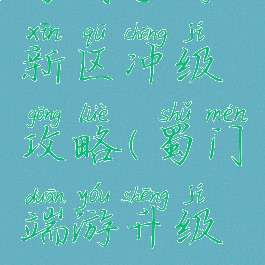 xīn qū chōng jí
新区冲级
gōng lüè shǔ mén
攻略(蜀门
duān yóu shēng jí
端游升级